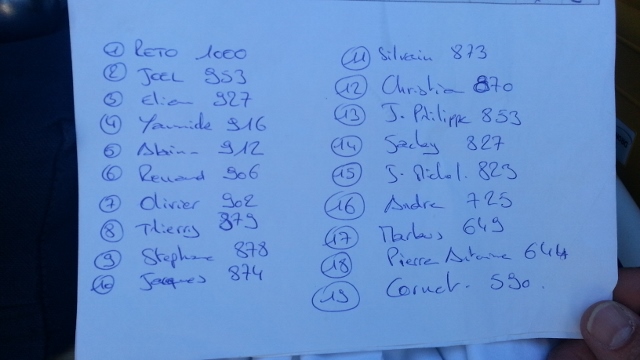 1 RETO 1000
2 JOEL 953
3 Elien 927
4 Yannick 916
5 Alain 912
6 Renaud 906
7 Olivier 902
8 Thierry 879
9 Stephane 878
10 Jacques 874
11 Silvain 873
12 Christian 870
13 J. Philippe 853
14 827
15 J. Michel. 823
16 Andre 725
17 Markus 649
18 Pierre Antoine 644
19 Cornet. 590.